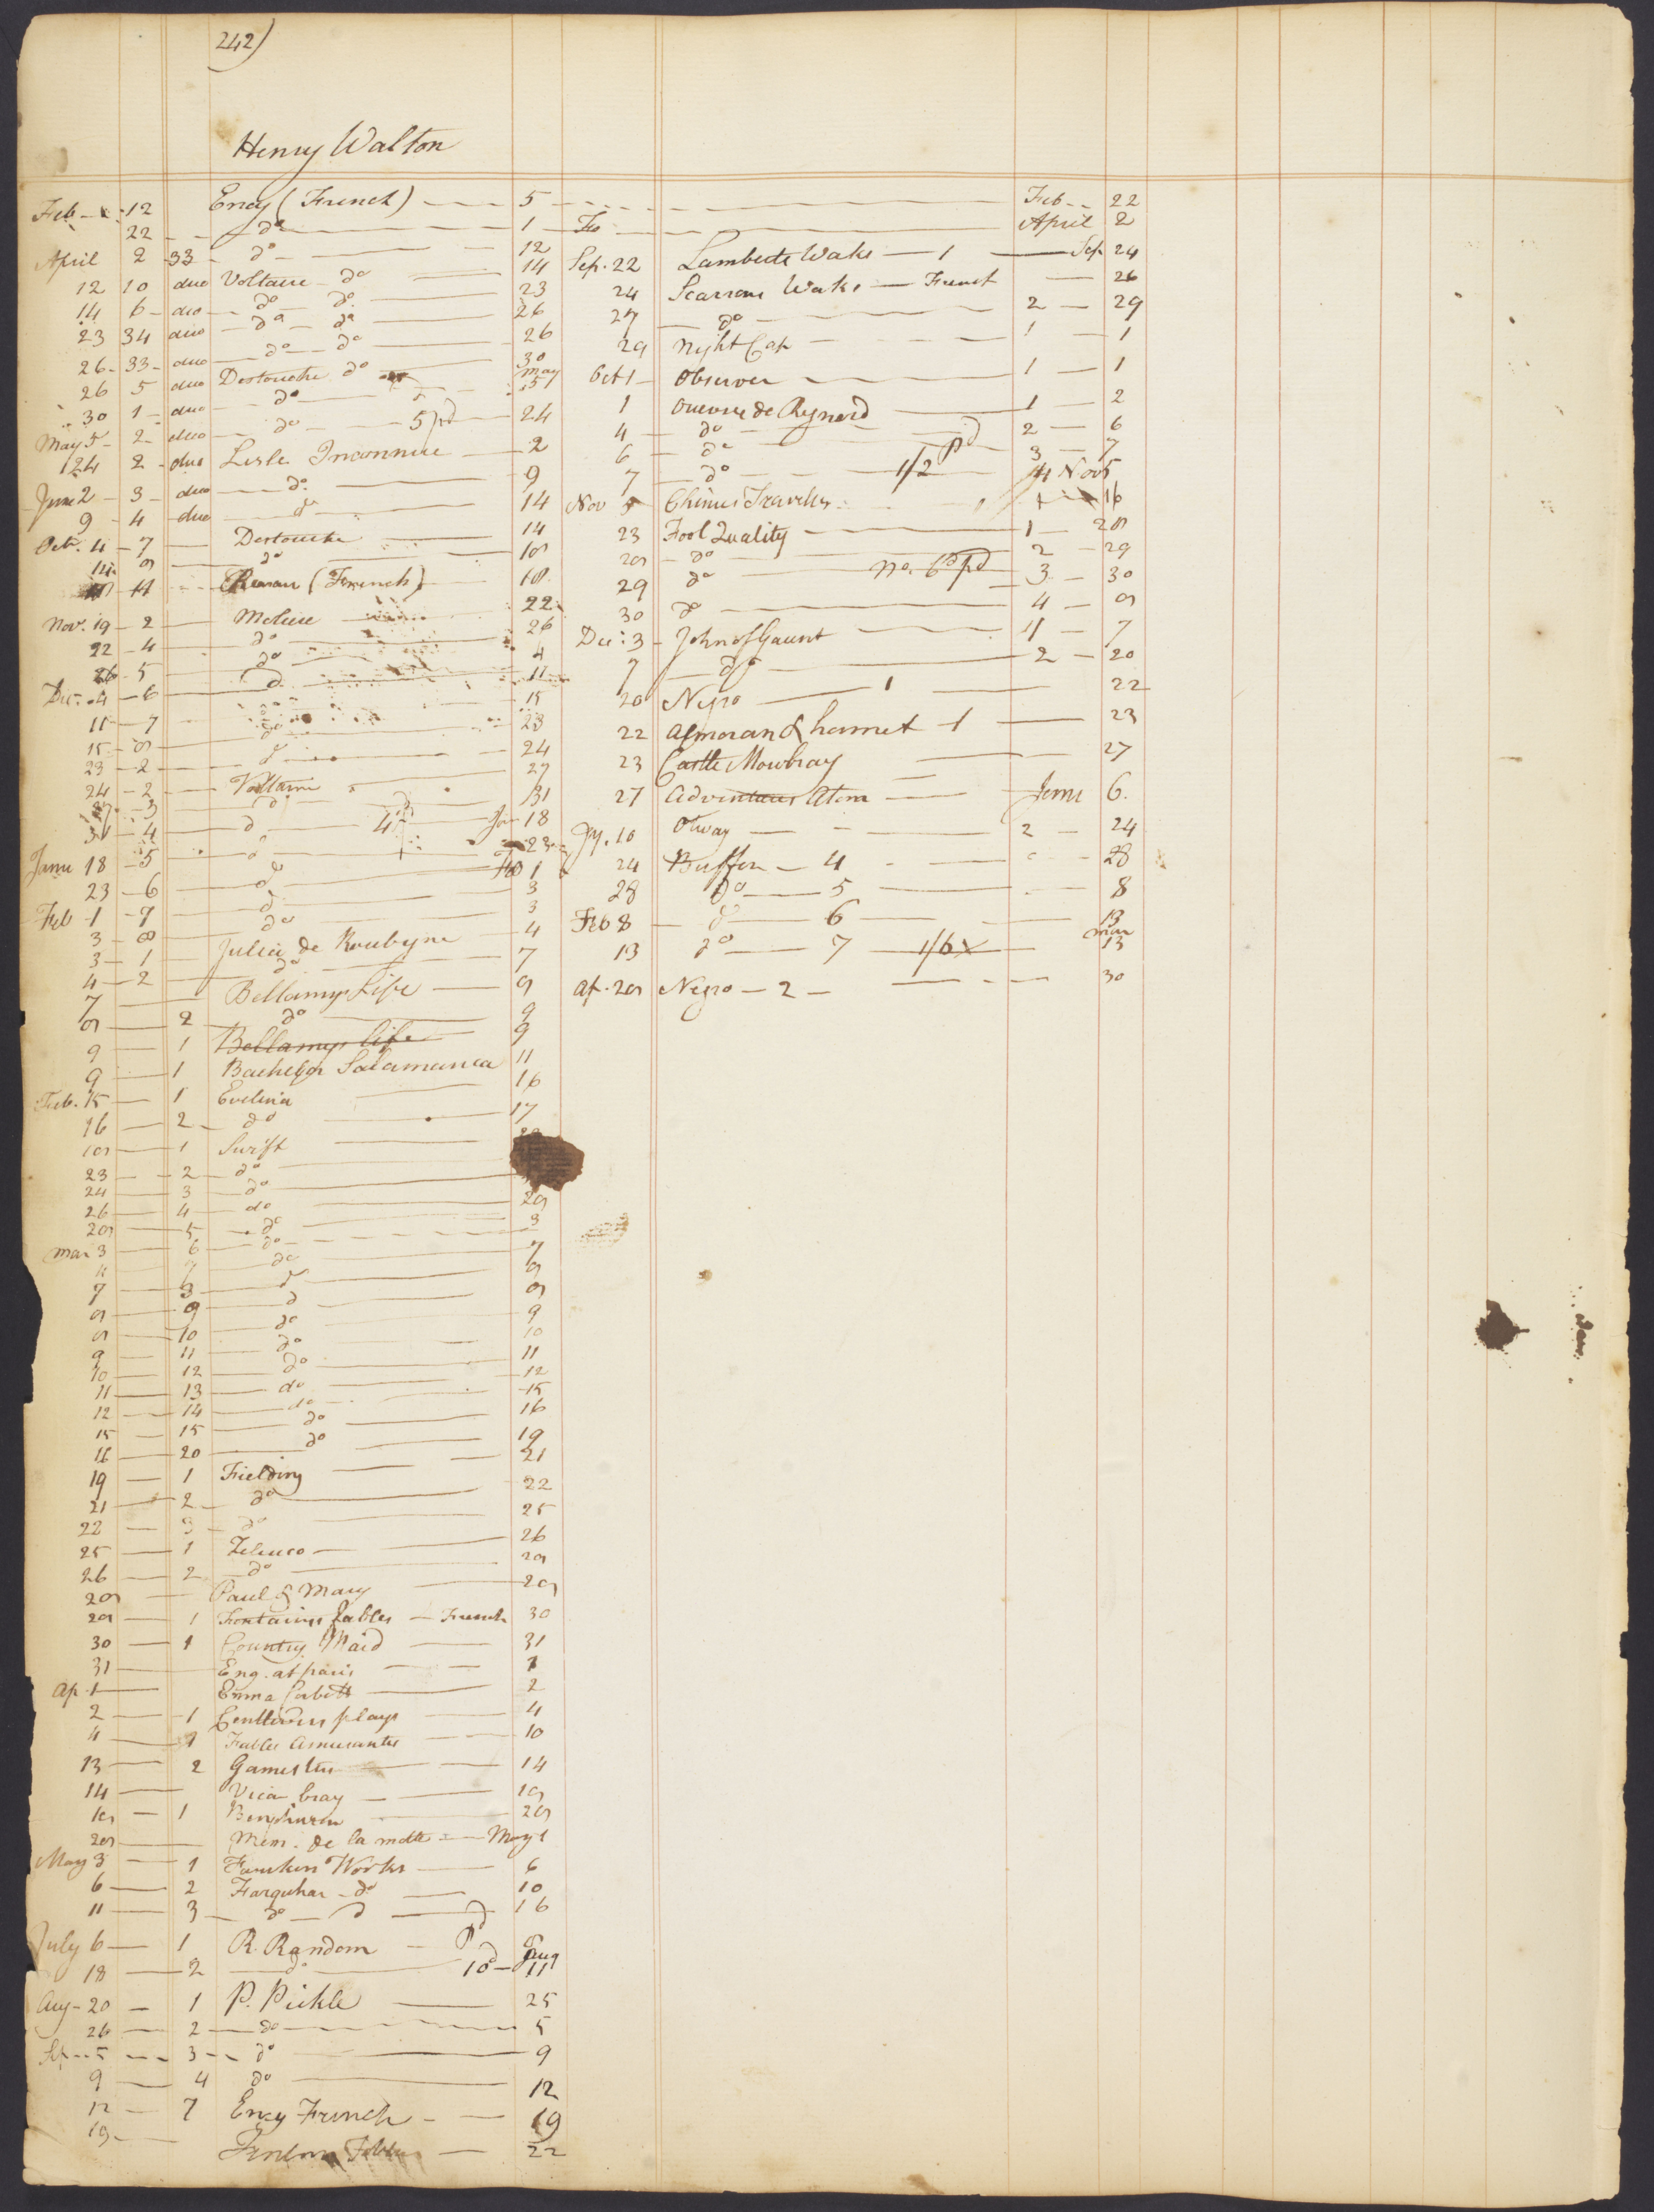 242)
Henry Walton
Feb 12 Ency (French) 5
22 do 1
April 2 33 do 12
12 10 duo Voltaire do 14
14 6 duo do do 23
23 34 duo do do 26
26 33 duo do do 26
26 5 duo Destouche do 30
30 1 duo do May 5
May 5 2 duo do 5 pd 24
24 2 duo Lisle Inconnue 2
June 2 3 duo do 9
9 4 duo do 14
Octr. 4 7 Destouche 14
14 8 do 18
11 (French) 18
Nov. 19 2 Moliere 22
22 4 do 26
26 5 do 4
Dec. 4 6 do 11
11 7 do 15
15 8 do 23
23 2 do 24
24 2 Voltaire 27
27 3 do 31
31 4 do 4 Jan 18
Janu 18 5 do 23
23 6 do Feb 1
Feb 1 7 do 3
3 8 do 3
3 1 Julia de Roubyne 4
4 2 do 7
7 Bellamys Life 8
8 2 do 9
9 1 Bellamys life 9
9 1 Bachelor Salamanca 11
Feb. 15 1 Evelina 16
16 2 do 17
18 1 Swift
23 2 do
24 3 do
26 4 do 28
28 5 do 3
Mar 3 6 do
4 7 do 7
7 8 do 8
8 9 do 8
8 10 do 9
9 11 do 10
10 12 do 11
11 13 do 12
12 14 do 15
15 15 do 16
16 20 do 19
19 1 Fielding 21
21 2 do 22
22 3 do 25
25 1 Zeluco 26
26 2 do 28
28 Paul & Mary 28
28 1 Fontaines Fables French 30
30 1 Country Maid 31
31 Eng. at paris 1
Ap. 1 Emma Corbett 2
2 1 Centlivres plays 4
4 1 Fables Amusantes 10
13 2 Gamesters 14
14 Vica bray 18
18 1 28
28 Mem. de la motte May 1
May 3 1 Works 6
6 2 Farquhar do 10
11 3 do do 16
July 6 1 R. Random Pd
18 2 do 10 Aug 11
Aug 20 1 P. Pickle 25
26 2 do 5
Sep 5 3 do 9
9 4 do 12
12 7 Ency French 19
19 22
Fe Feb 22
April 2
Sep. 22 Lamberts Wake 1 Sep 24
24 Scarrons Wake French 26
27 do 2 29
29 Night Cap 1 1
Oct 1 Observer 1 1
1 Ouevre de Regnard 1 2
4 do 2 6
6 do Pd 3 7
7 do 1/2 4 Nov 5
Nov 5 Chinese Traveller 1 16
23 Fool Quality 1 28
28 do 2 29
29 do No. 6 pd 3 30
30 do 4 8
Dec: 3 John of Gaunt 1 7
7 do 2 20
20 Negro 1 22
22 Almoran & hamet 1 23
23 Castle Mowbray 27
27 Adventures Atom Janu 6.
Jy. 10 Otway 2 24
24 Buffon 4 28
28 do 5 8
Feb 8 do 6 13
13 do 7 1/6 Mar 13
Ap. 28 Negro 2 30